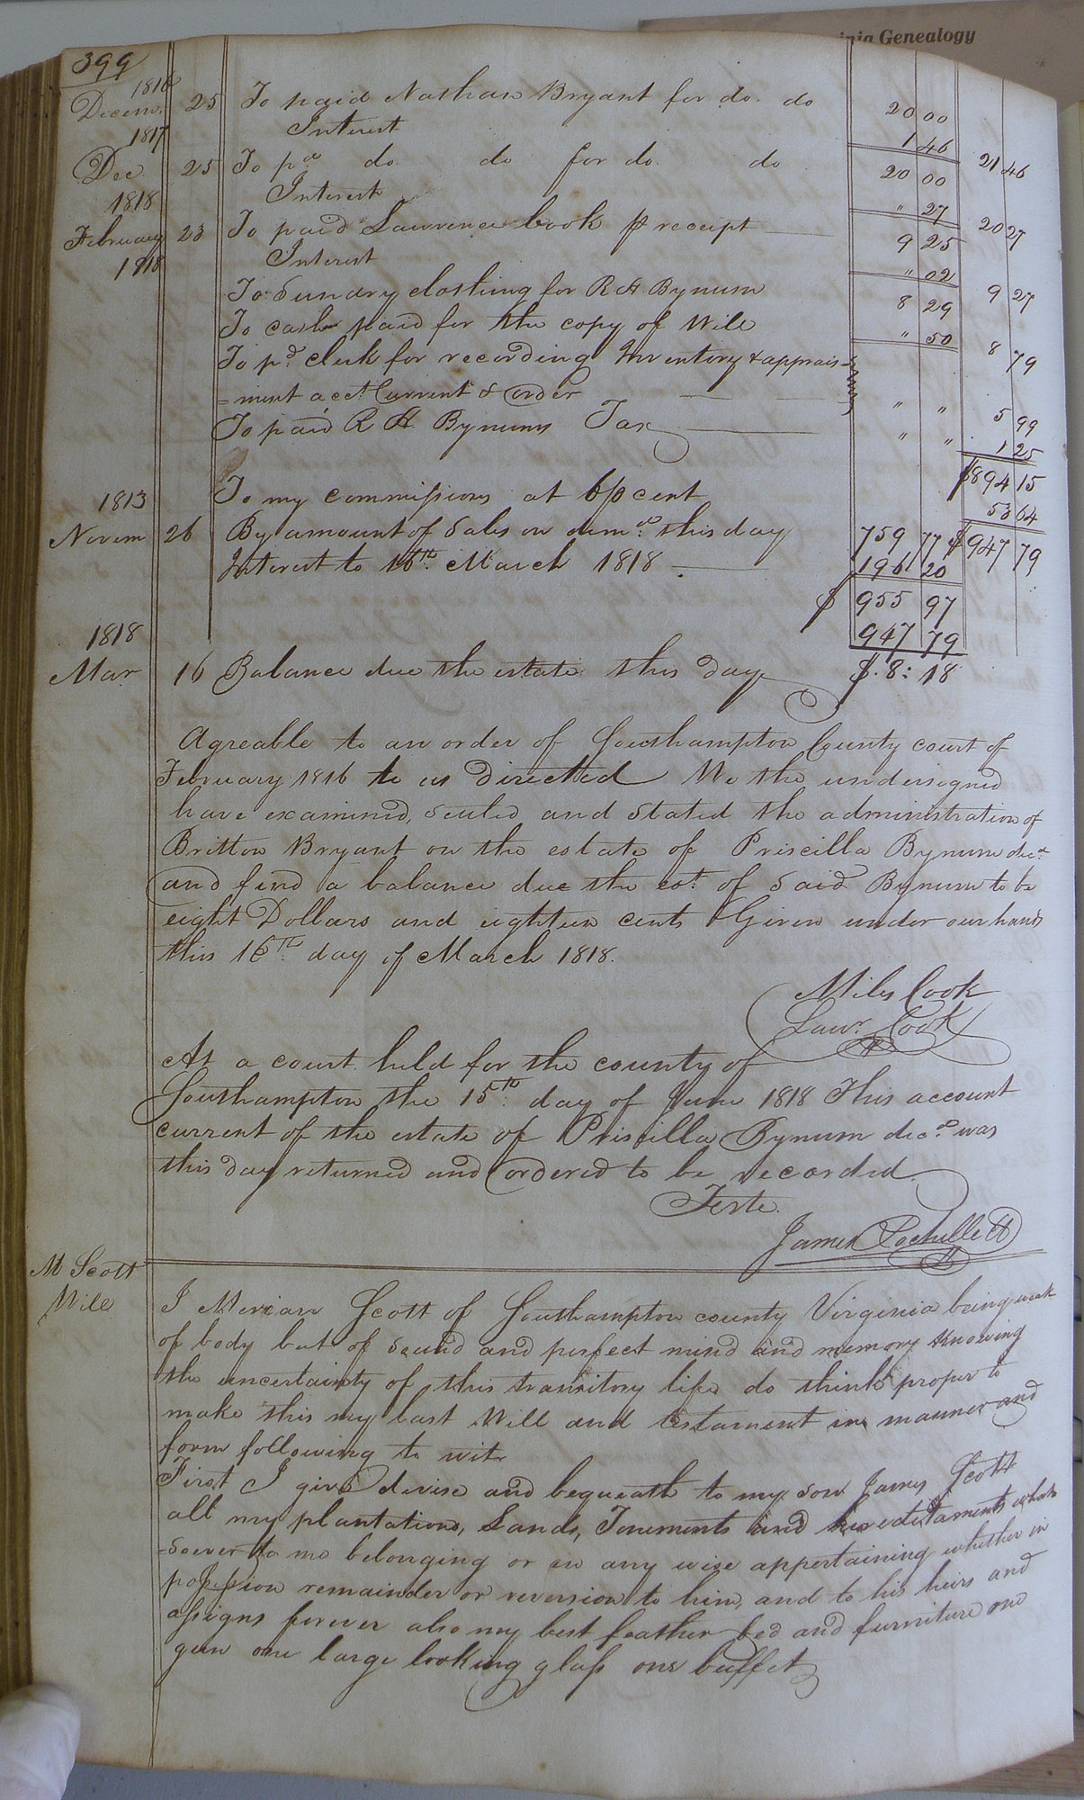 inia Genealogy
399
1816
Decem. 25 To paid Nathan Bryant for do. do 20 00
Interest 1 46 21 46
1817
Dec 25 To pd do do for do. do 20 00
Interest " 27 20 27
1818
February 23 To paid Lawrence Cook p receipt 9 25
1818
Interest " 02 9 27
To Sundry clothing for R H Bynum 8 29
To cash paid for the copy of Will " 50 8 79
To pd. clerk for recording Inventory & apprais-
=ment acct. Current & Order " " 5 99
To paid R H Bynums Tax " " 1 25
$894 15
To my commissions at 6 p cent 53 64
1813
Novem 26 By amount of Sales on dem. this day 759 77 $947 79
Interest to 16th. March 1818 196 20
$ 955 97
1818
947 79
Mar 16 Balance due the estate this day $. 8: 18
Agreable to an order of Southampton County court of
February 1816 to us Directed We the undersigned
have examined, settled and Stated the administration of
Britton Bryant on the estate of Priscilla Bynum decd
and find a balance due the est. of Said Bynum to be
eight Dollars and eighteen cents Given under our hands
this 16th. day of March 1818.
Miles Cook
Lawr. Cook
At a court held for the county of
Southampton the 15th. day of June 1818 This account
current of the estate of Priscilla Bynum decd. was
this day returned and Ordered to be recorded
Teste.
James Rochelle Cl
M Scott
Will
I Meriam Scott of Southampton county Virginia being weak
of body but of Sound and perfect mind and memory knowing
the uncertainty of this transitory life do think proper to
make this my last Will and testament in manner and
form following to wit
First I give devise and bequeath to my son James Scott
all my plantations, Lands, Tenements and hereditaments what=
=soever to me belonging or in any wise appertaining whether in
possession remainder or reversion to him, and to his heirs and
assigns forever also my best feather bed and furniture one
gun one large looking glass one buffet